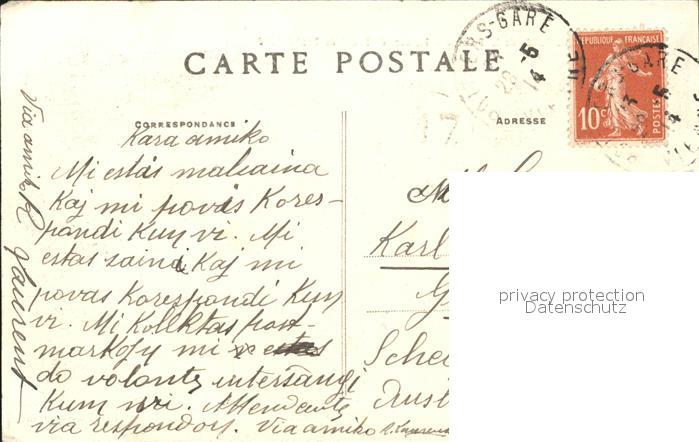 CARTE POSTALE
CORRESPONDANCE
ADRESSE
RS-GARE
REPUBLIQUE FRANÇAISE
10c
POSTES
Kara amiko
Mi estas malsaina
Kaj mi povas Kores-
pondi Kun vi. Mi
estas saina Kaj mi
povas Korespondi Kun
vi. Mi Kollktas post-
markojy mi
do volonte intersangi
Kum vi. Attendante
via respondon. Via amiko
Via amiko
Laurent
Karl
Schei
privacy protection
Datenschutz